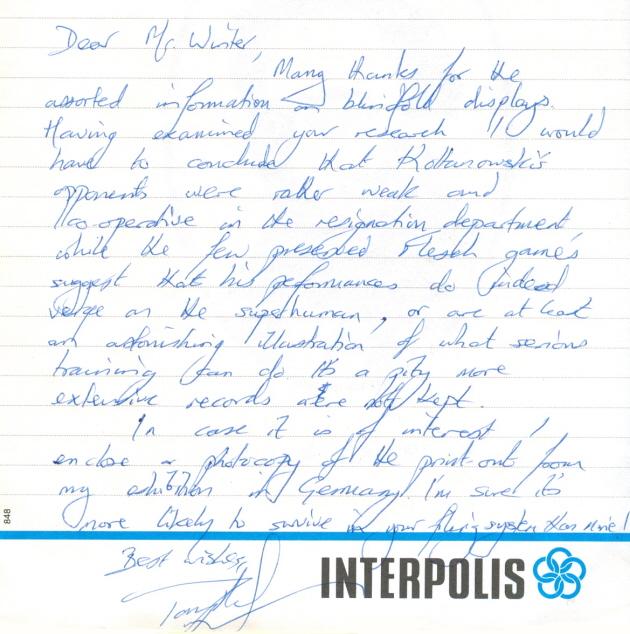 Dear Mr. Winter,
Many thanks for the
assorted information on blindfold displays.
Having examined your research I would
have to conclude that Koltanowski's
opponents were rather weak and
co-operative in the resignation department,
while the few preserved Flesch games
suggest that his performances do indeed
verge on the superhuman, or are at least
an astonishing illustration of what serious
training can do. It's a pity more
extensive records were not kept.
In case it is of interest I
enclose a photocopy of the print-out from
my exhibition in Germany. I'm sure it's
more likely to survive in your filing system than mine!
Best wishes,
848
INTERPOLIS